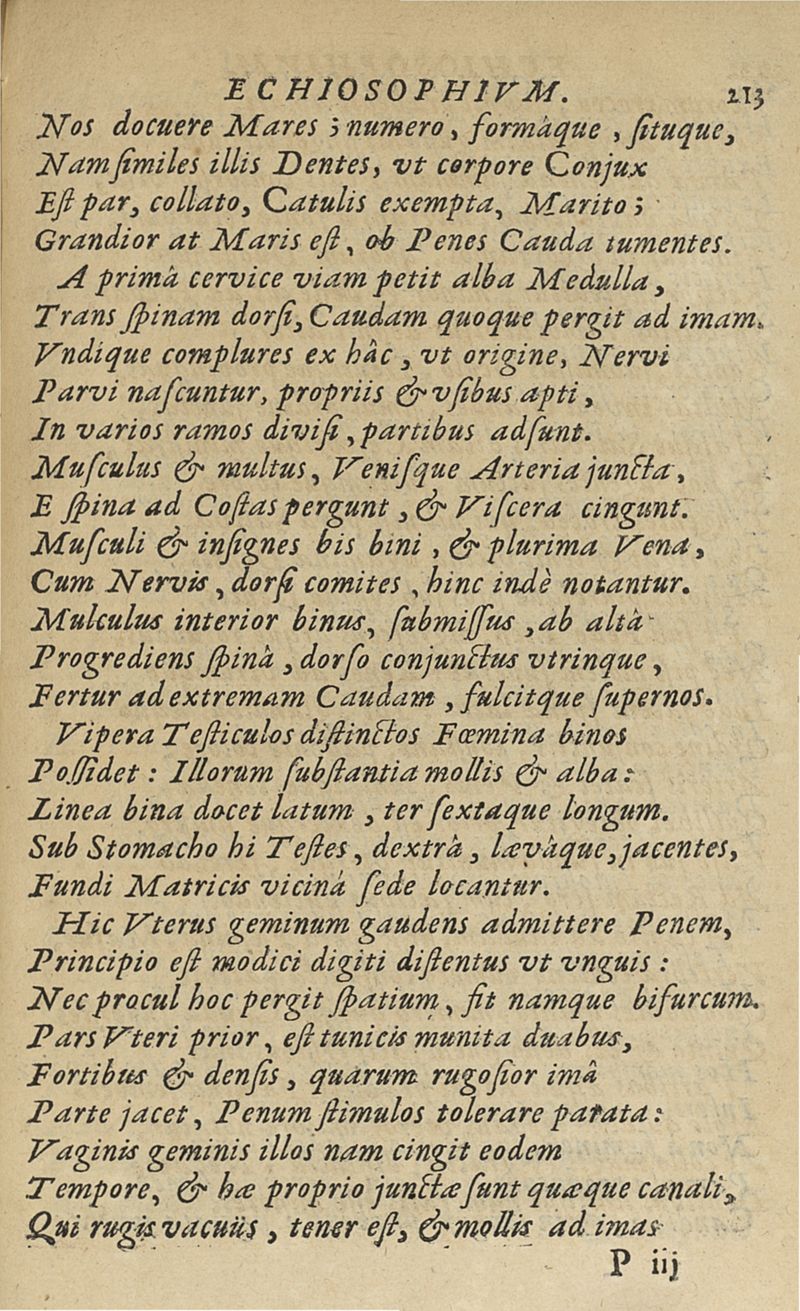 ECHIOSOPHIVM. 213
Nos docuere Mares; numero, formàque, ſituque,
Nam ſimiles illis Dentes, vt corpore Conjux
Eſt par, collato, Catulis exempta, Marito;
Grandior at Maris eſt, ob Penes Cauda tumentes.
A primà cervice viam petit alba Medulla,
Trans ſpinam dorſi, Caudam quoque pergit ad imam.
Vndique complures ex hâc, vt origine, Nervi
Parvi naſcuntur, propriis & vſibus apti,
In varios ramos diviſi, partibus adſunt.
Muſculus & multus, Veniſque Arteria juncta,
E ſpina ad Coſtas pergunt, & Viſcera cingunt.
Muſculi & inſignes bis bini, & plurima Vena,
Cum Nervis, dorſi comites, hinc indè notantur.
Mulculus interior binus, ſubmiſſus, ab altà
Progrediens ſpinà, dorſo conjunctus vtrinque,
Fertur ad extremam Caudam, fulcitque ſupernos.
Vipera Teſticulos diſtinctos Fœmina binos
Poſſidet: Illorum ſubſtantia mollis & alba:
Linea bina docet latum, ter ſextaque longum.
Sub Stomacho hi Teſtes, dextrà, lævàque, jacentes,
Fundi Matricis vicinà ſede locantur.
Hic Vterus geminum gaudens admittere Penem,
Principio eſt modici digiti diſtentus vt vnguis:
Nec procul hoc pergit ſpatium, fit namque bifurcum.
Pars Vteri prior, eſt tunicis munita duabus,
Fortibus & denſis, quarum rugoſior imâ
Parte jacet, Penum ſtimulos tolerare parata:
Vaginis geminis illos nam cingit eodem
Tempore, & hæ proprio junctæ ſunt quæque canali,
Qui rugis vacuüs, tener eſt, & mollis ad imas
P iij